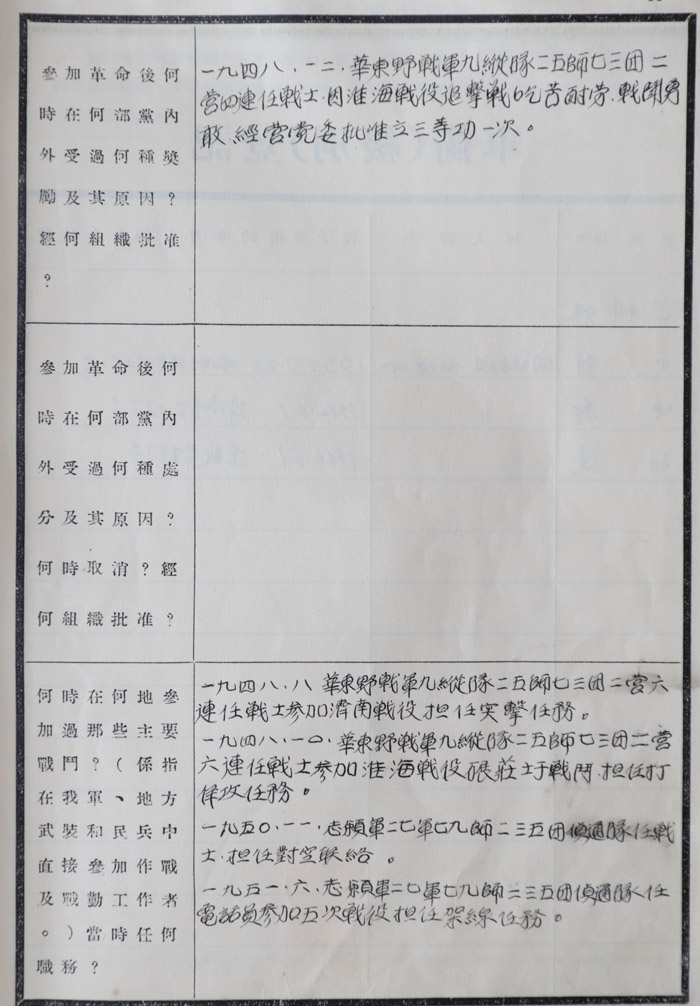 參加革命後何
時在何部黨內
外受過何種獎
勵及其原因？
經何組織批准
？
一九四八．一二．華東野戰軍九縱隊二五師七三团二
营四連任戰士．因淮海戰役追擊戰吃苦耐劳．戰鬥勇
敢．經营党委批准立三等功一次。
參加革命後何
時在何部黨內
外受過何種處
分及其原因？
何時取消？經
何組織批准？
何時在何地參
加過那些主要
戰鬥？（係指
在我軍、地方
武裝和民兵中
直接參加作戰
及戰勤工作者
。）當時任何
職務？
一九四八．八 華東野戰軍九縱隊二五師七三团二营六
連任戰士參加濟南戰役担任突擊任務。
一九四八．一〇．華東野戰軍九縱隊二五師七三团二营
六連任戰士參加淮海戰役張莊于戰鬥．担任打
佯攻任務。
一九五〇．一一．志願軍二七軍七九師二三五团偵通隊任戰
士．担任对空联络。
一九五一．六．志願軍二七軍七九師二三五团偵通隊任
電話員參加五次戰役担任架線任務。